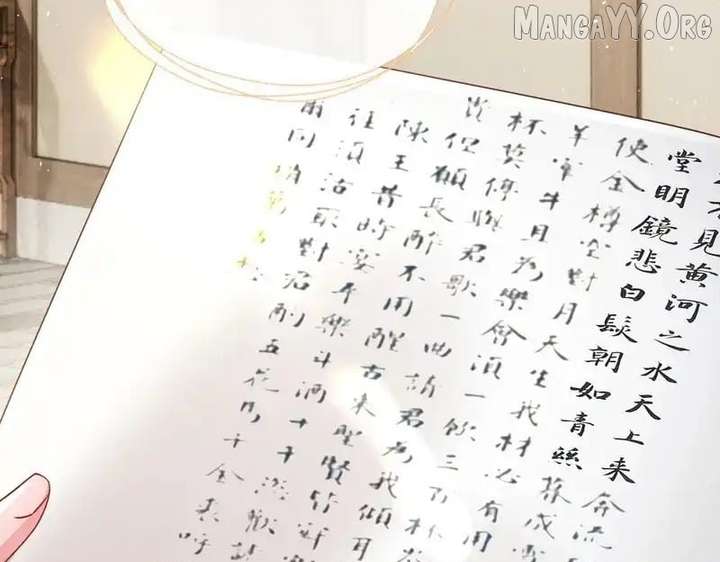 MangaYY.Org
不見黃河之水天上来奔流
堂明鏡悲白髮朝如青絲暮成雪
使金樽空對月天生我材必有用
羊宰牛且為樂會須一飲三百杯
杯莫停與君歌一曲請君為我傾耳
貴但願長醉不用醒古来聖賢皆寂
陳王昔時宴平樂斗酒十千恣歡謔
徑須沽取對君酌五花馬千金裘呼
爾同銷萬古愁